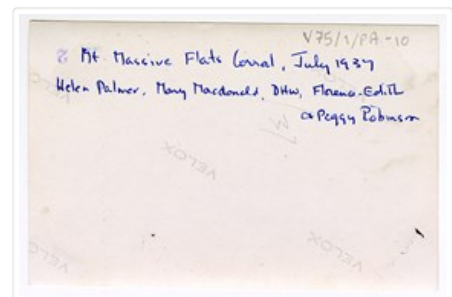 V75/1/PA-10
2 Mt. Massive Flats Corral, July 1937
Helen Palmer, Mary Macdonald, DHW, Florence-Edith
& Peggy Robinson
VELOX
VELOX
VELOX